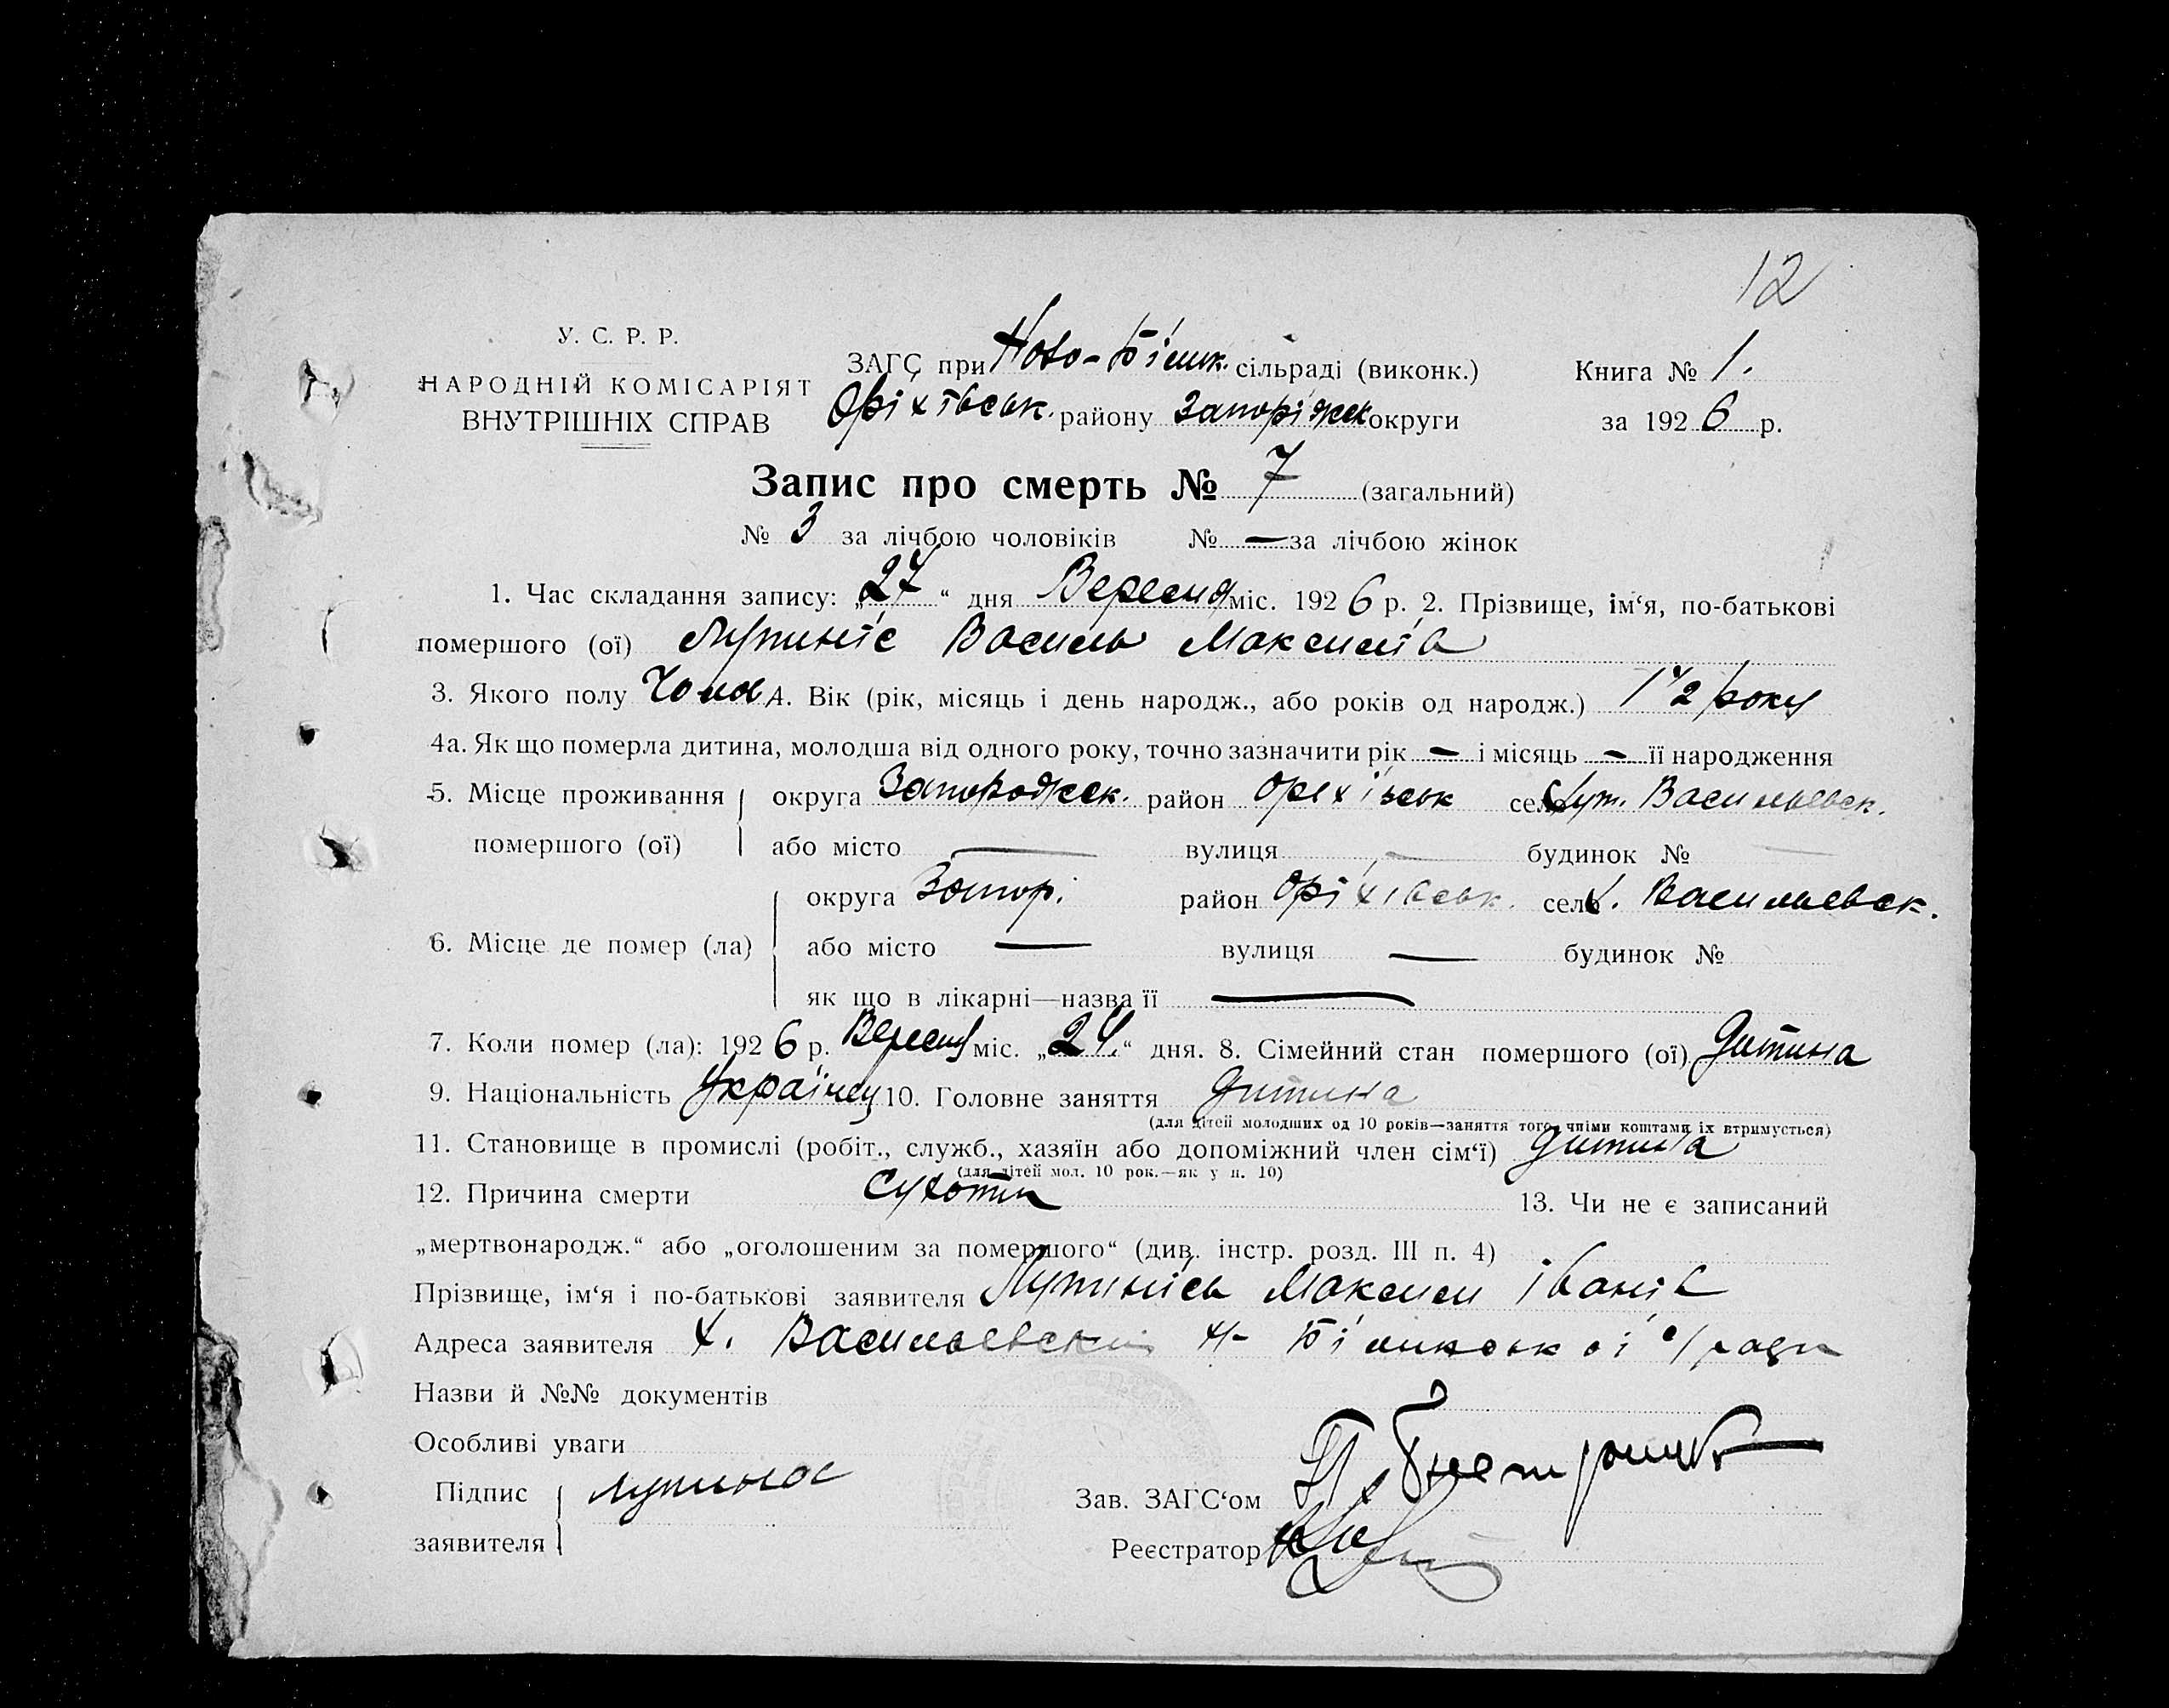 12
У. С. Р. Р.
НАРОДНІЙ КОМІСАРІЯТ
ВНУТРІШНІХ СПРАВ
ЗАГС при Ново-Білик. сільраді (виконк.)
Оріхівськ. району Запоріжск округи
Книга № 1.
за 1926 р.
Запис про смерть № 7 (загальний)
№ 3 за лічбою чоловіків № — за лічбою жінок
1. Час складання запису: „27“ дня Вересня міс. 1926 р. 2. Прізвище, ім‘я, по-батькові
помершого (ої) Лупиніс Василь Максимів
3. Якого полу Чолов 4. Вік (рік, місяць і день народж., або років од народж.) 1 1/2 року
4а. Як що померла дитина, молодша від одного року, точно зазначити рік — і місяць — її народження
5. Місце проживання помершого (ої) округа район Оріхівськ село Хут. Васильевск.
або місто — вулиця — будинок № —
6. Місце де помер (ла) округа Запор. район Оріхівськ. село Х. Васильевск.
або місто — вулиця — будинок №
як що в лікарні—назва її —
7. Коли помер (ла): 1926 р. Вересня міс. „24.“ дня. 8. Сімейний стан помершого (ої) Дитина
9. Національність Українец 10. Головне заняття Дитина
(для дітей молодших од 10 років—заняття того, чиїми коштами їх втримується)
11. Становище в промислі (робіт., служб., хазяїн або допоміжний член сім‘ї) Дитина
(для дітей мол. 10 рок.—як у п. 10)
12. Причина смерти Сухоти 13. Чи не є записаний
„мертвонародж.“ або „оголошеним за помершого“ (див. інстр. розд. III п. 4)
Прізвище, ім‘я і по-батькові заявителя Лупинісь Максим Іванів
Адреса заявителя Х. Васильевский Н-Біликської с/ради
Назви й №№ документів
Особливі уваги
Підпис заявителя Лупинос
Зав. ЗАГС‘ом
Реєстратор